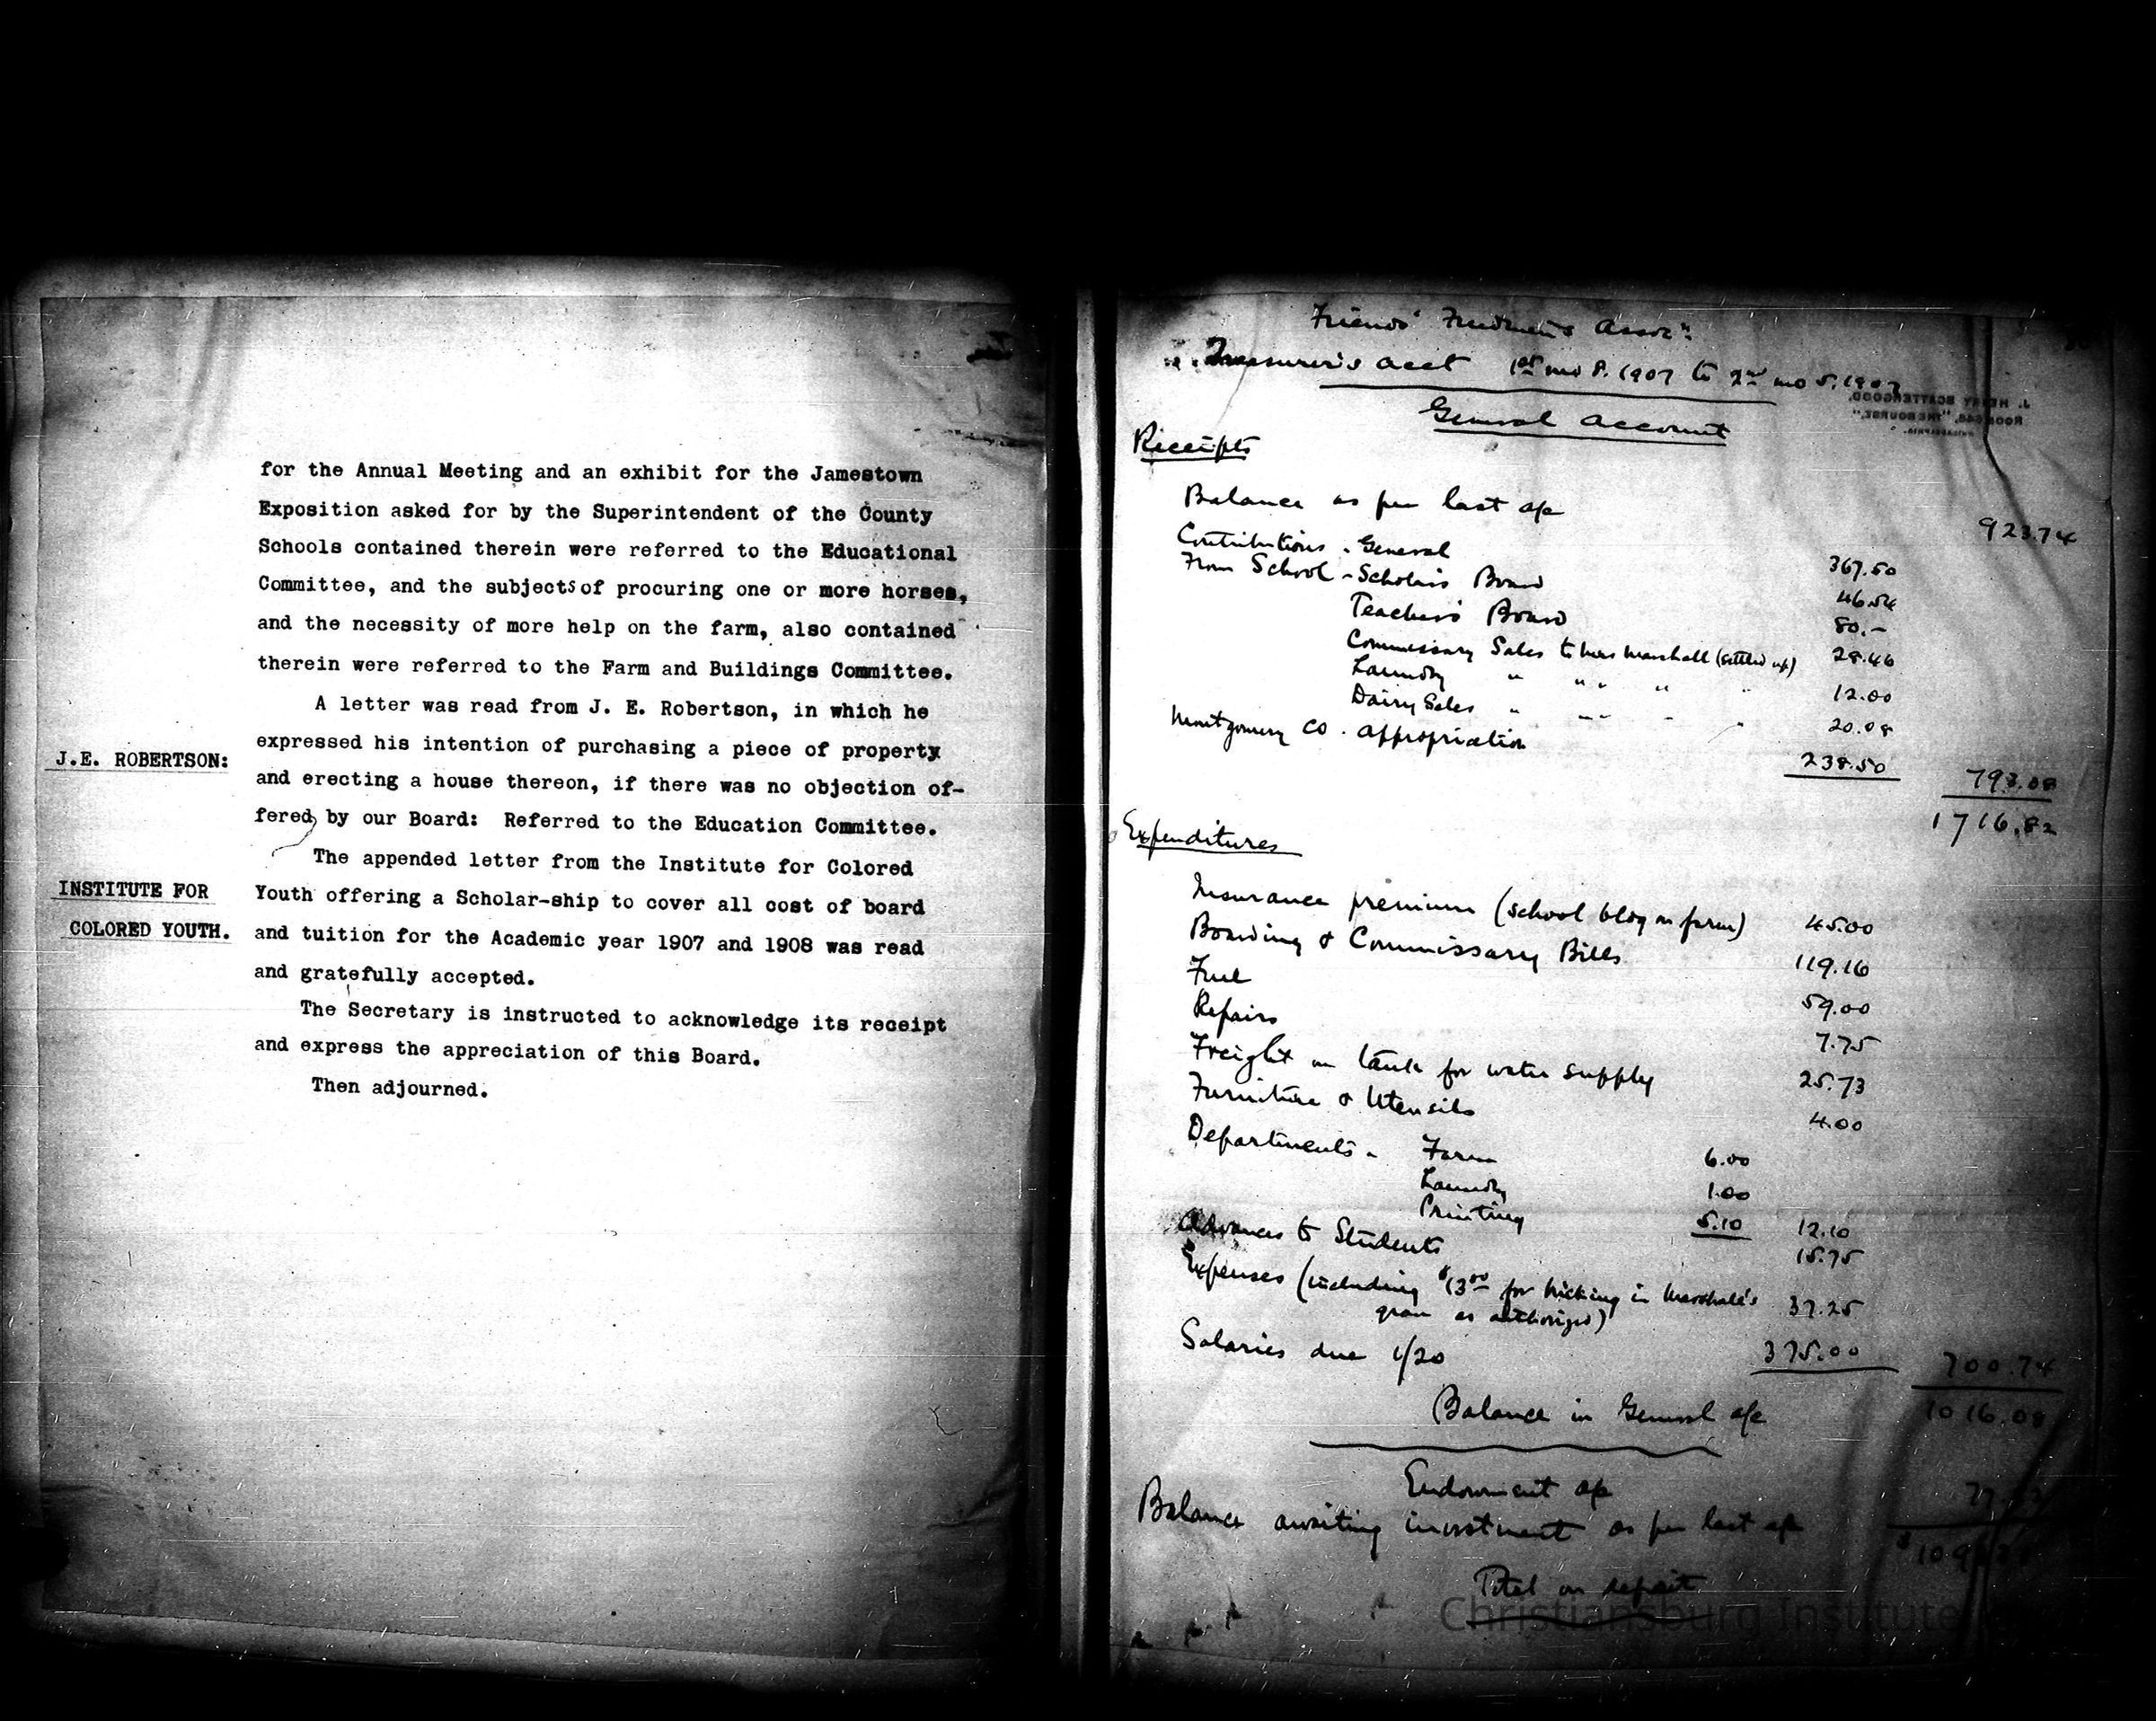 for the Annual Meeting and an exhibit for the Jamestown
Exposition asked for by the Superintendent of the County
Schools contained therein were referred to the Educational
Committee, and the subjects of procuring one or more horses,
and the necessity of more help on the farm, also contained
therein were referred to the Farm and Buildings Committee.
A letter was read from J. E. Robertson, in which he
expressed his intention of purchasing a piece of property
J.E. ROBERTSON:
and erecting a house thereon, if there was no objection of-
fered by our Board: Referred to the Education Committee.
The appended letter from the Institute for Colored
INSTITUTE FOR
Youth offering a Scholar-ship to cover all cost of board
COLORED YOUTH.
and tuition for the Academic year 1907 and 1908 was read
and gratefully accepted.
The Secretary is instructed to acknowledge its receipt
and express the appreciation of this Board.
Then adjourned.
Friends' Freedmen's Assoc'n:
Treasurer's acct 1st mo 8. 1907 to 2nd mo 5, 1907
J. HENRY SCATTERGOOD,
ROOM 648, "THE BOURSE,"
PHILADELPHIA.
General Account
Receipts
Balance as per last a/c 923.74
Contributions - General 367.50
From School - Scholars Board 46.54
Teachers Board 80.-
Commissary Sales to Miss Marshall (settled up) 28.46
Laundry " " " " " 12.00
Dairy Sales " " " " " 20.08
Montgomery Co. appropriation 238.50 793.08
1716.82
Expenditures
Insurance premium (school bldg on farm) 45.00
Boarding & Commissary Bills 119.16
Fuel 59.00
Repairs 7.75
Freight on tank for water supply 25.73
Furniture & Utensils 4.00
Departments - Farm 6.00
Laundry 1.00
Printing 5.10 12.10
Advances to Students 15.75
Expenses (including $13.00 for bricking in Marshall's 37.25
grave as authorized)
Salaries due 1/20 375.00 700.74
Balance in General a/c 1016.08
Endowment a/c
Balance awaiting investment as per last a/c
Total on deposit
Christiansburg Institute